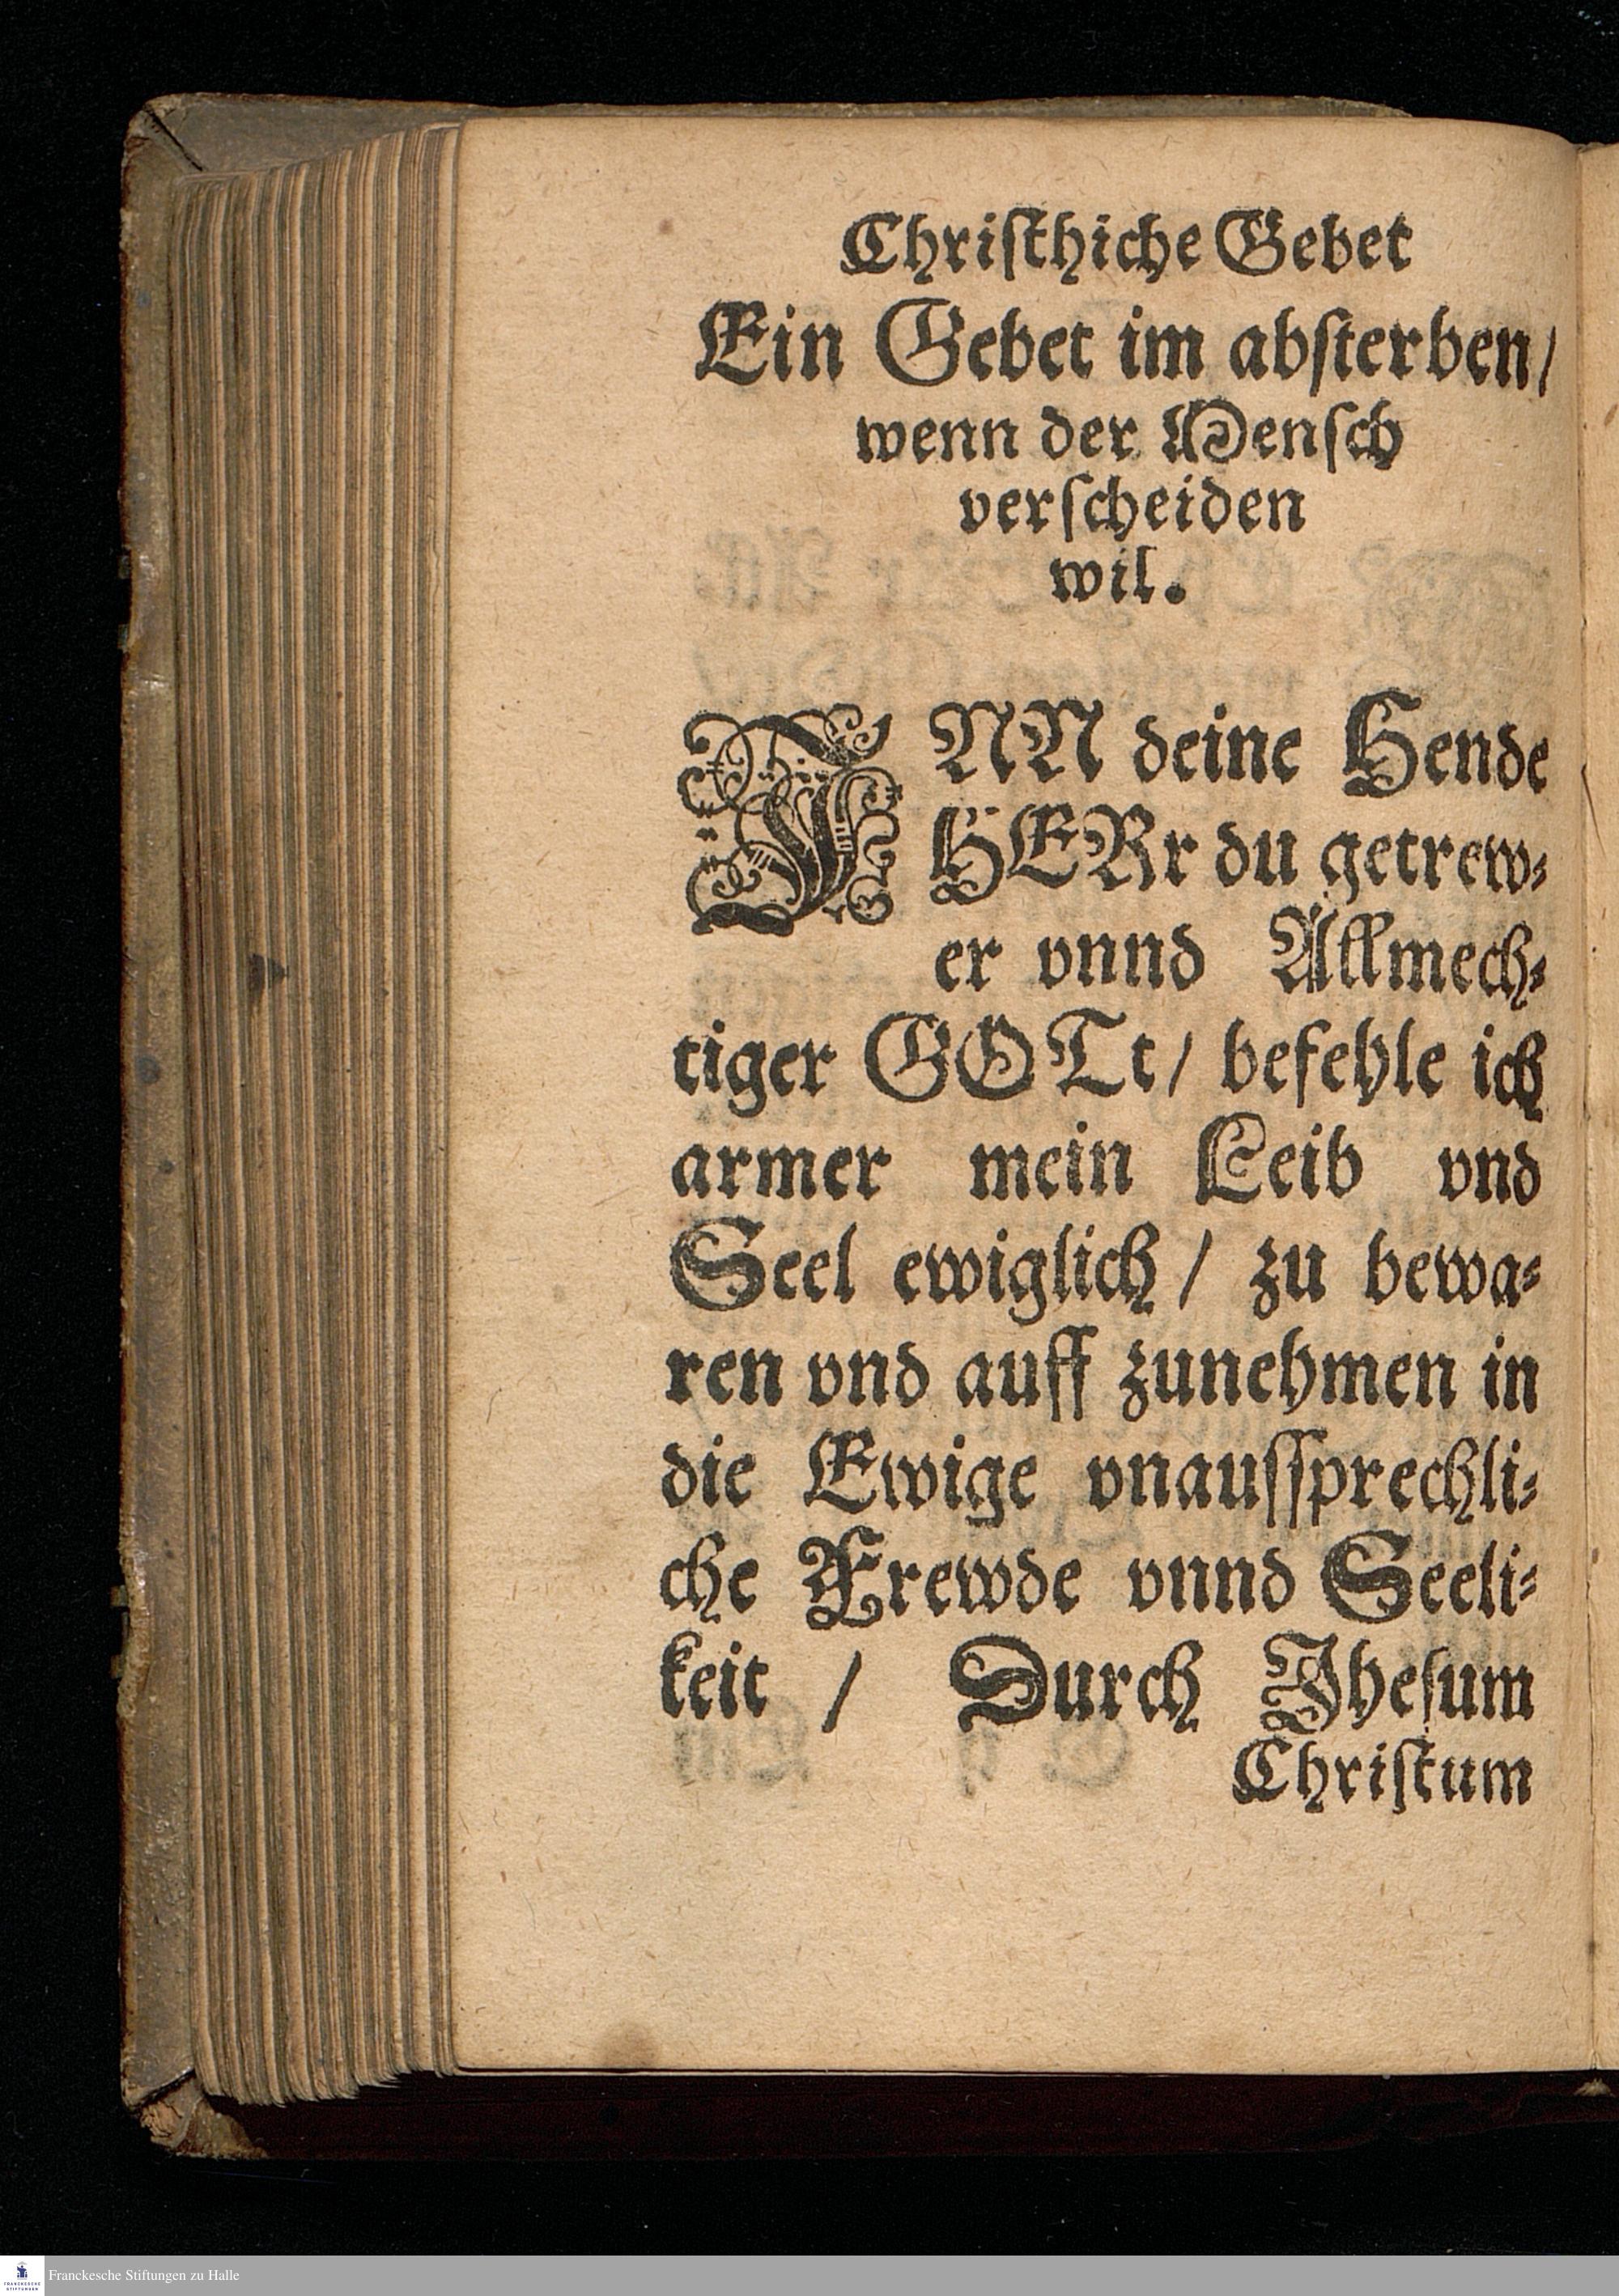 Chriſthiche Gebet
Ein Gebet im abſterben/
wenn der Menſch
verſcheiden
wil.
INN deine Hende
HERr du getrew⸗
er vnnd Allmech⸗
tiger GOTt/ befehle ich
armer mein Leib vnd
Seel ewiglich/ zu bewa⸗
ren vnd auff zunehmen in
die Ewige vnauſſprechli⸗
che Frewde vnnd Seeli⸗
keit / Durch Jheſum
Chriſtum
FRANCKESCHE STIFTUNGEN
Franckesche Stiftungen zu Halle